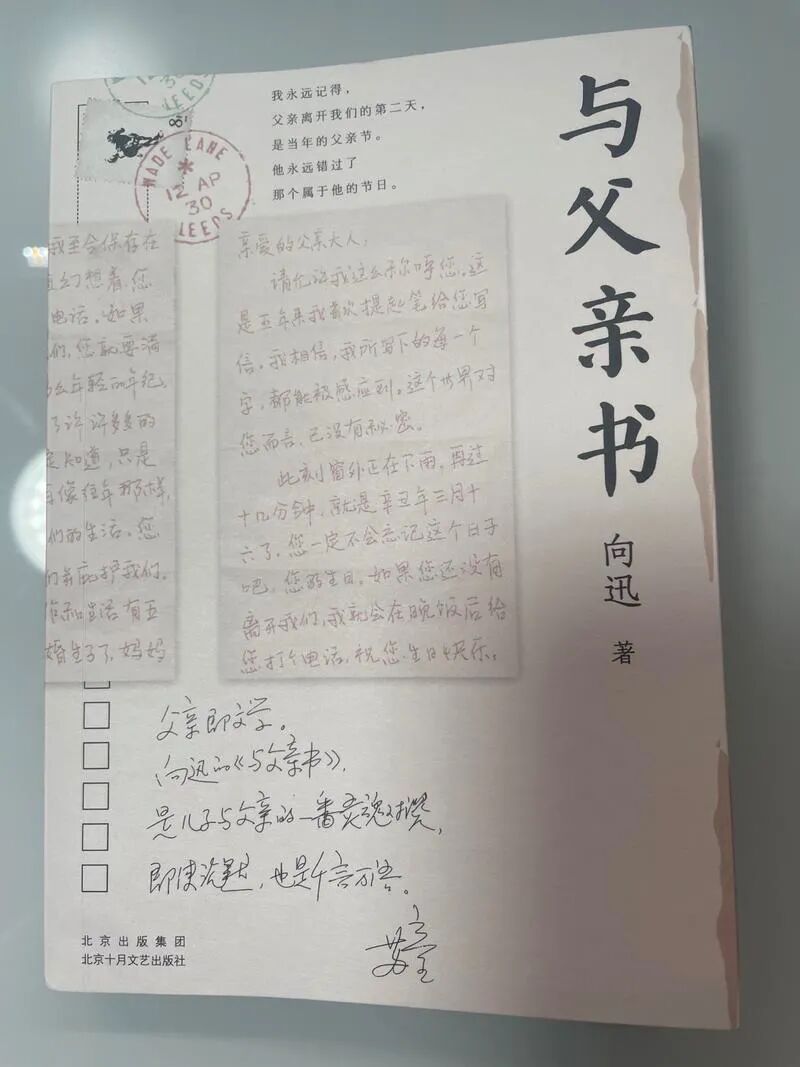 与父亲书
向迅
著
我永远记得,
父亲离开我们的第二天,
是当年的父亲节。
他永远错过了
那个属于他的节日。
30
LEEDS
WADE LANE
12 AP
30
LEEDS
我至今保存在
直幻想着,您
电话。如果
们,您就要满
么年轻的年纪,
了许许多多的
定知道,只是
再像往年那样,
们的生活。您
们并庇护我们。
作和生活有五
婚生子了,妈妈
亲爱的父亲大人:
请允许我这么称呼您。这
是五年来我首次提起笔给您写
信。我相信,我所写下的每一个
字,都能被感应到。这个世界对
您而言,已没有秘密。
此刻窗外正在下雨,再过
十几分钟,就是辛丑年三月十
六了。您一定不会忘记这个日子
吧,您的生日。如果您还没有
离开我们,我就会在晚饭后给
您打个电话,祝您生日快乐。
父亲即文学。
向迅的《与父亲书》,
是儿子与父亲的一番灵魂对
即使沉默,也是千言万语。
苏童
北京出版集团
北京十月文艺出版社